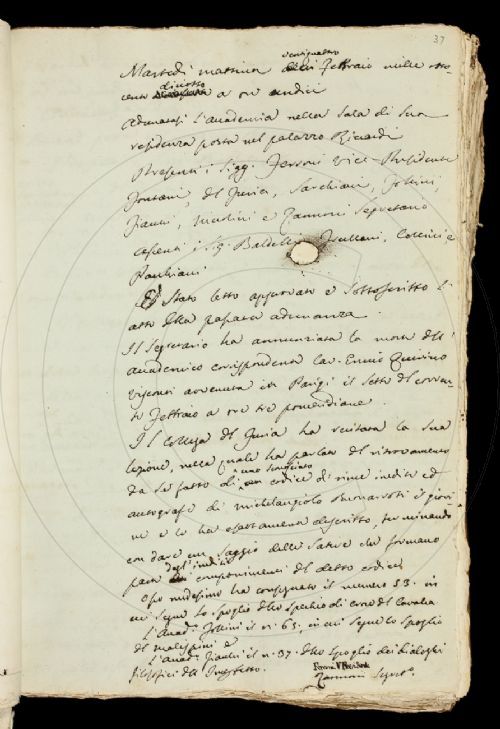 37
ventiquattro
Martedì mattina Febbraio mille otto-
diciotto
cento a ore undici
Adunatasi l'Accademia nella Sala di sua
residenza posta nel palazzo Riccardi
Presenti i Sigg. Ferroni Vice-Presidente
Fontani, del Furia, Sarchiani, Follini,
Fiacchi, e Zannoni Segretario
assenti i Sig. Baldelli, Collini e
È stato letto approvato e sottoscritto l'
atto della passata adunanza.
Il Segretario ha annunziata la morte dell'
accademico corrispondente Cav. Ennio Quirino
Visconti avvenuta in Parigi il sette del corren-
te Febbraio a ore tre pomeridiane.
Il Collega del Furia ha recitata la sua
lezione, nella quale ha parlato del ritrovamento
da se fatto di codice di rime inedite ed
autografe di Michelangiolo Buonarroti il giovi-
ne e lo ha esattamente descritto, terminando
con dare un saggio delle Satire che formano
degl'inediti
parte componimenti del detto codice
Esso medesimo ha consegnato il numero 53. in
cui segue lo spoglio dello specchio di croce del Cavalca
L'Accad. Follini il n. 63, in cui segue lo spoglio
del Malespini e
l'Accad. Fiacchi il n. 37. dello spoglio dei dialoghi
filosofici del
Ferroni V. Presidente
Zannoni Segret.º